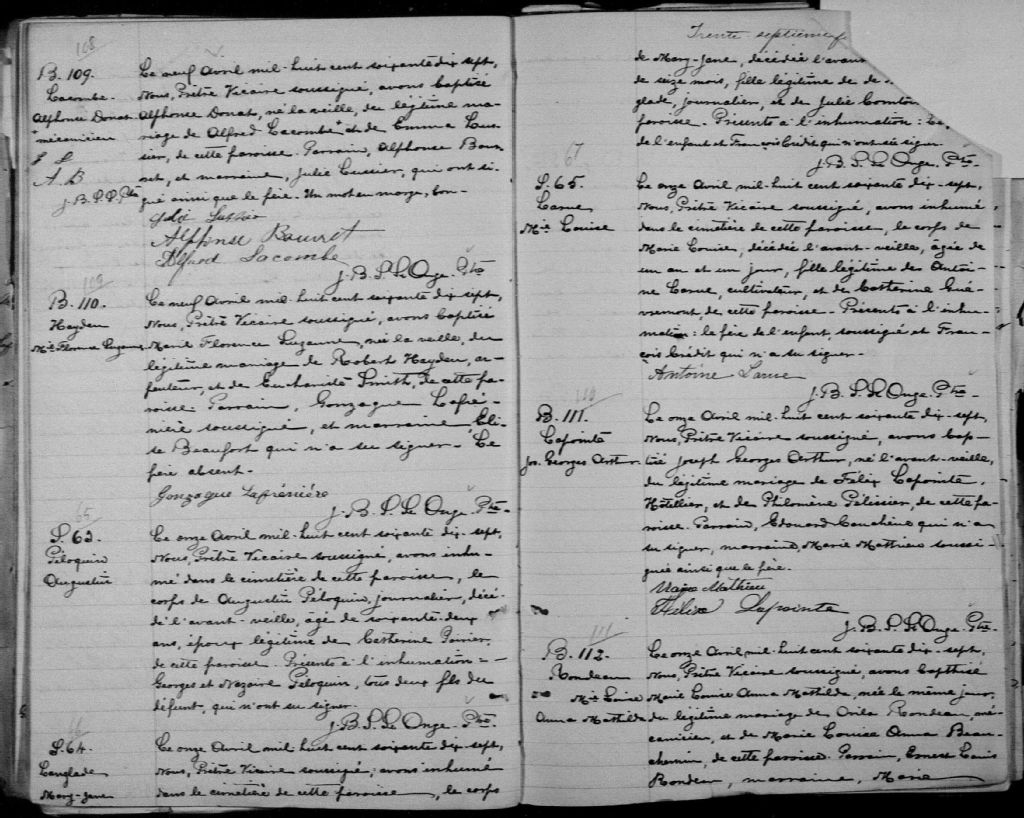 108
B. 109.
Lacombe
Alphonse Donat
+ mécanicien
J L
A. B
J.B.P.P. Ptre
Le neuf Avril mil-huit cent soixante dix sept,
Nous, Prêtre Vicaire soussigné, avons baptisé
Alphonse Donat, né la veille, du légitime ma-
riage de Alfred Lacombe + et de Emma Lus-
sier, de cette paroisse. Parrain, Alphonse Bour-
et, et marraine, Julie Lussier, qui ont si-
gné ainsi que le père. Un mot en marge, bon-
Julie Lussier
Alphonse Bourret
Alfred Lacombe
J.B.S. St Onge. Ptre
109
B. 110.
Hayden
Mie Florence Suzanne
Le neuf Avril mil-huit cent soixante dix sept,
Nous, Prêtre Vicaire soussigné, avons baptisé
Marie Florence Suzanne, née la veille, du
légitime mariage de Robert Hayden, ar-
penteur, et de Euchariste Smith, de cette pa-
roisse. Parrain, Gonzague Lafré-
nière soussigné, et marraine Eli-
se Beaufort qui n'a su signer. Le
père absent.
Gonzague Lafrenière
J.B.S. St Onge. Ptre
65
S. 63.
Péloquin
Augustin
Le onze Avril mil-huit cent soixante dix-sept,
Nous, Prêtre Vicaire soussigné, avons inhu-
mé dans le cimetière de cette paroisse, le
corps de Augustin Péloquin, journalier, décé-
dé l'avant-veille, âgé de soixante-deux
ans, époux légitime de Catherine Poirier,
de cette paroisse. Présents à l'inhumation =
Georges et Nazaire Péloquin, tous deux fils du
défunt, qui n'ont su signer.
J.B.S. St Onge. Ptre
66
S. 64.
Langlade
Mary-Jane
Le onze Avril mil huit cent soixante dix sept,
Nous, Prêtre Vicaire soussigné, avons inhumé
dans le cimetière de cette paroisse, le corps
Trente septième f
de Mary-Jane, décédée l'avant
de seize mois, fille légitime de
glade, journalier, et de Julie Comtois
paroisse. Présents à l'inhumation :
de l'enfant et François Crédit qui n'ont su signer.
J.B.S. St Onge. Ptre
67
S. 65.
Larue
Mie Louise
Le onze Avril mil-huit cent soixante dix-sept,
Nous, Prêtre Vicaire soussigné, avons inhumé
dans le cimetière de cette paroisse, le corps de
Marie Louise, décédée l'avant-veille, âgée de
un an et un jour, fille légitime de Antoi-
ne Larue, cultivateur, et de Catherine Gué-
vremont de cette paroisse. Présents à l'inhu-
mation : le père de l'enfant, soussigné et Fran-
çois Crédit qui n'a su signer.
Antoine Larue
J.B.S. St Onge. Ptre
110
B. 111.
Lapointe
Jos. Georges Arthur.
Le onze Avril mil-huit cent soixante dix-sept,
Nous, Prêtre Vicaire soussigné, avons bap-
tisé Joseph Georges Arthur, né l'avant-veille,
du légitime mariage de Félix Lapointe,
Hôtellier, et de Philomène Pélissier, de cette pa-
roisse. Parrain, Edouard Cauchène qui n'a
su signer, marraine, Marie Mathieu soussi-
gnée ainsi que le père.
Marie Mathieu
Félix Lapointe
J.B.S. St Onge. Ptre
111
B. 112.
Rondeau
Mie Louise
Anna Mathilda
Le onze Avril mil-huit cent soixante dix-sept,
Nous, Prêtre Vicaire soussigné, avons baptisé
Marie Louise Anna Mathilda, née le même jour,
du légitime mariage de Orila Rondeau, mé-
canicien, et de Marie Louise Anna Beau-
chemin, de cette paroisse. Parrain, Ernest Louis
Rondeau, marraine, Marie